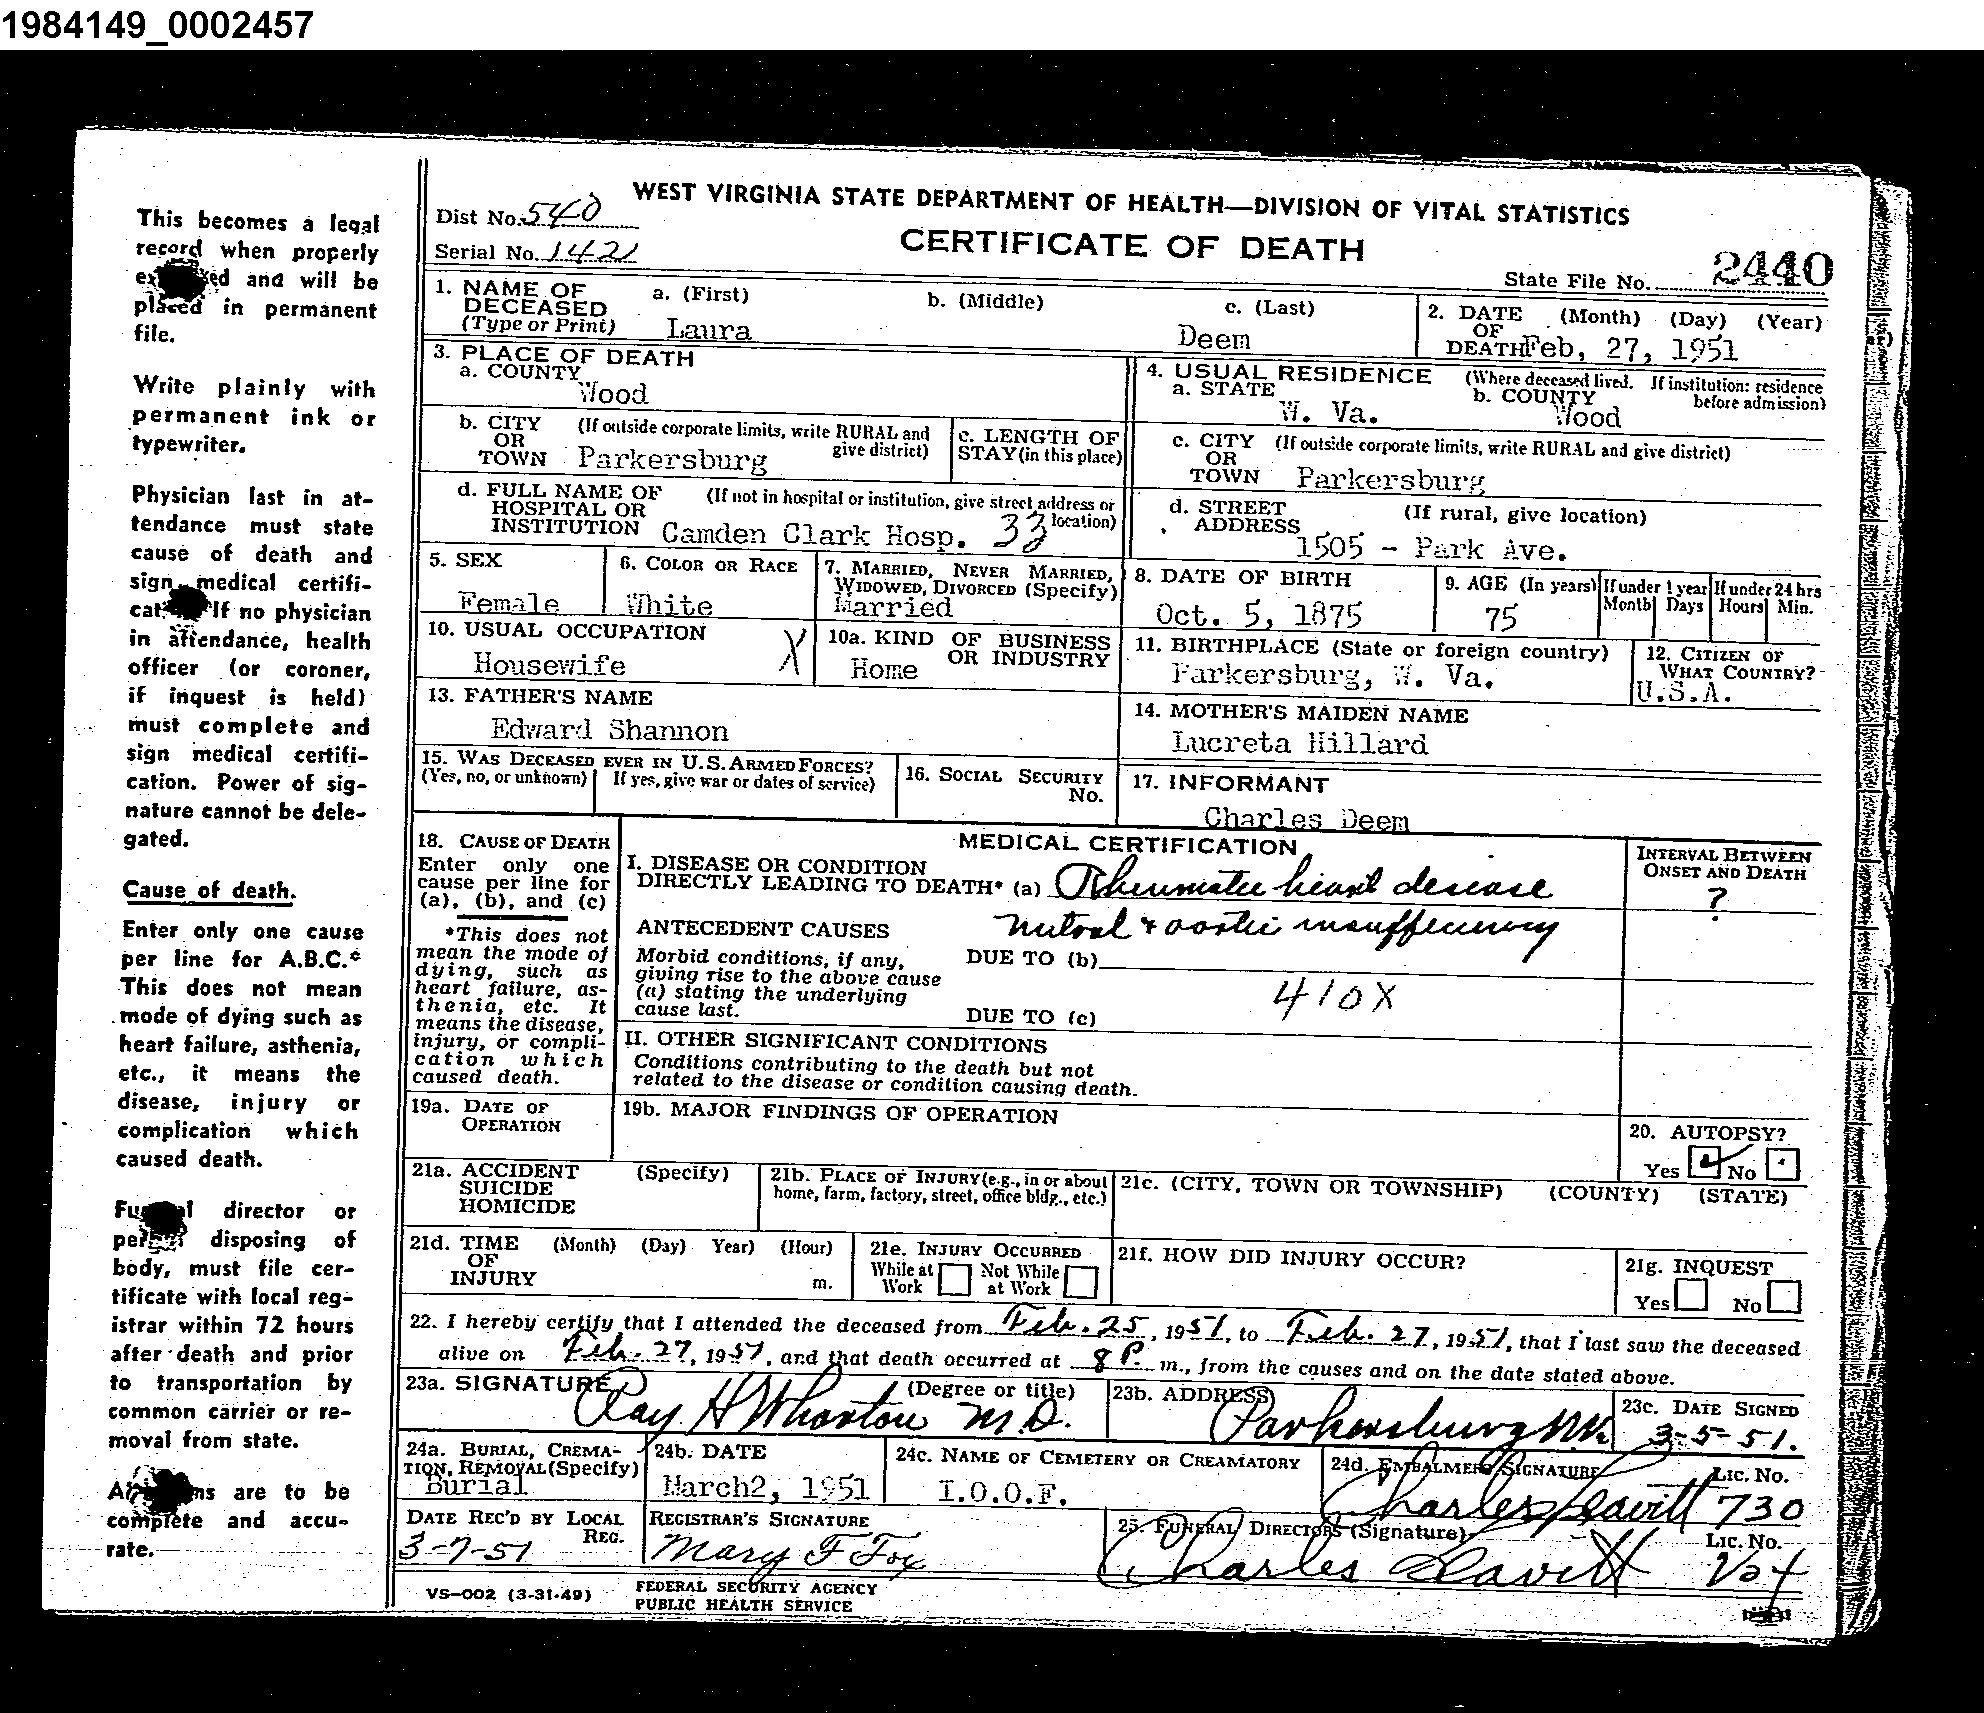 1984149_0002457
This becomes a legal
record when properly
and will be
placed in permanent
file.
Write plainly with
permanent ink or
typewriter.
Physician last in at-
tendance must state
cause of death and
sign medical certifi-
If no physician
in attendance, health
officer (or coroner,
if inquest is held)
must complete and
sign medical certifi-
cation. Power of sig-
nature cannot be dele-
gated.
Cause of death.
Enter only one cause
per line for A.B.C.*
This does not mean
mode of dying such as
heart failure, asthenia,
etc., it means the
disease, injury or
complication which
caused death.
director or
disposing of
body, must file cer-
tificate with local reg-
istrar within 72 hours
after death and prior
to transportation by
common carrier or re-
moval from state.
are to be
complete and accu-
rate.
WEST VIRGINIA STATE DEPARTMENT OF HEALTH—DIVISION OF VITAL STATISTICS
CERTIFICATE OF DEATH
Dist No. 540
Serial No. 1421
State File No. 2440
1. NAME OF DECEASED (Type or Print)
a. (First) Laura
b. (Middle)
c. (Last) Deem
2. DATE OF DEATH (Month) (Day) (Year) Feb, 27, 1951
3. PLACE OF DEATH
a. COUNTY Wood
b. CITY OR TOWN (If outside corporate limits, write RURAL and give district) Parkersburg
c. LENGTH OF STAY (in this place)
d. FULL NAME OF HOSPITAL OR INSTITUTION (If not in hospital or institution, give street address or location) Camden Clark Hosp. 33
4. USUAL RESIDENCE (Where deceased lived. If institution: residence before admission)
a. STATE W. Va.
b. COUNTY Wood
c. CITY OR TOWN (If outside corporate limits, write RURAL and give district) Parkersburg
d. STREET ADDRESS (If rural, give location) 1505 - Park Ave.
5. SEX Female
6. COLOR OR RACE White
7. MARRIED, NEVER MARRIED, WIDOWED, DIVORCED (Specify) Married
8. DATE OF BIRTH Oct. 5, 1875
9. AGE (In years) 75
If under 1 year Month Days
If under 24 hrs Hours Min.
10. USUAL OCCUPATION Housewife X
10a. KIND OF BUSINESS OR INDUSTRY Home
11. BIRTHPLACE (State or foreign country) Parkersburg, W. Va.
12. CITIZEN OF WHAT COUNTRY? U.S.A.
13. FATHER'S NAME Edward Shannon
14. MOTHER'S MAIDEN NAME Lucreta Hillard
15. WAS DECEASED EVER IN U.S. ARMED FORCES?
(Yes, no, or unknown) If yes, give war or dates of service)
16. SOCIAL SECURITY No.
17. INFORMANT Charles Deem
18. CAUSE OF DEATH
Enter only one
cause per line for
(a), (b), and (c)
*This does not
mean the mode of
dying, such as
heart failure, as-
thenia, etc. It
means the disease,
injury, or compli-
cation which
caused death.
MEDICAL CERTIFICATION
INTERVAL BETWEEN ONSET AND DEATH
?
I. DISEASE OR CONDITION
DIRECTLY LEADING TO DEATH* (a) Rheumatic heart disease
mitral & aortic insufficiency
ANTECEDENT CAUSES
Morbid conditions, if any,
giving rise to the above cause
(a) stating the underlying
cause last.
DUE TO (b)
410X
DUE TO (c)
II. OTHER SIGNIFICANT CONDITIONS
Conditions contributing to the death but not
related to the disease or condition causing death.
19a. DATE OF OPERATION
19b. MAJOR FINDINGS OF OPERATION
20. AUTOPSY?
Yes No
21a. ACCIDENT SUICIDE HOMICIDE (Specify)
21b. PLACE OF INJURY (e.g., in or about home, farm, factory, street, office bldg., etc.)
21c. (CITY, TOWN OR TOWNSHIP) (COUNTY) (STATE)
21d. TIME OF INJURY (Month) (Day) Year) (Hour) m.
21e. INJURY OCCURRED
While at Work Not While at Work
21f. HOW DID INJURY OCCUR?
21g. INQUEST
Yes No
22. I hereby certify that I attended the deceased from Feb. 25, 1951, to Feb. 27, 1951, that I last saw the deceased
alive on Feb. 27, 1951, and that death occurred at 8 P. m., from the causes and on the date stated above.
23a. SIGNATURE (Degree or title) Ray H Wharton M.D.
23b. ADDRESS Parkersburg W.Va
23c. DATE SIGNED 3-5-51.
24a. BURIAL, CREMATION, REMOVAL (Specify) Burial
24b. DATE March2, 1951
24c. NAME OF CEMETERY OR CREAMATORY I.O.O.F.
24d. EMBALMERS SIGNATURE Charles Leavitt Lic. No. 730
DATE REC'D BY LOCAL REG. 3-7-51
REGISTRAR'S SIGNATURE Mary F Fox
25. FUNERAL DIRECTORS (Signature) Charles Leavitt Lic. No.
VS-002 (3-31-49)
FEDERAL SECURITY AGENCY
PUBLIC HEALTH SERVICE